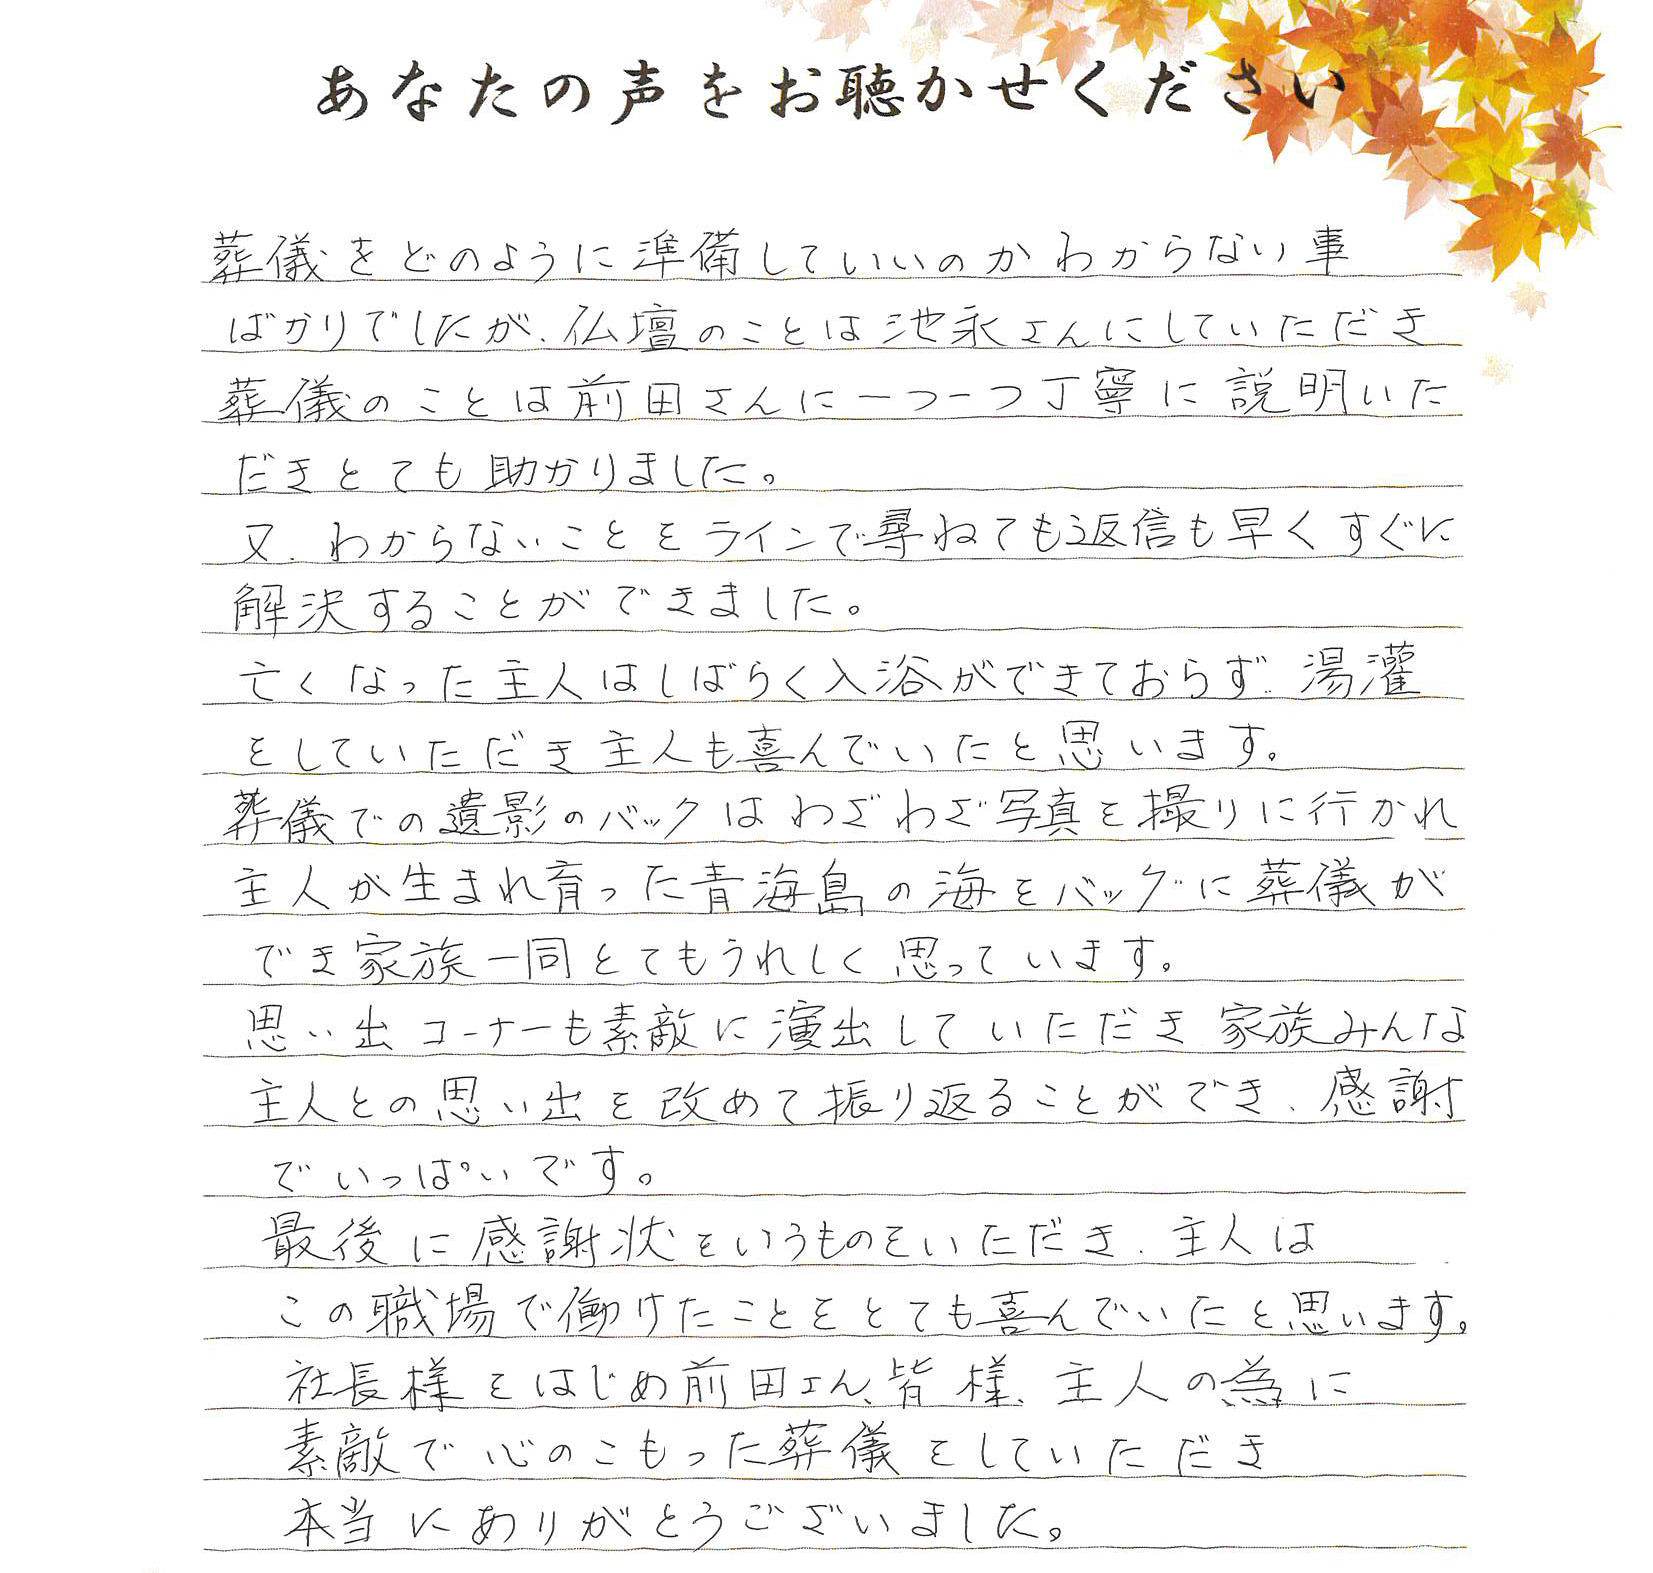 あなたの声をお聴かせください
葬儀をどのように準備していいのかわからない事
ばかりでしたが、仏壇のことは池永さんにしていただき
葬儀のことは前田さんに一つ一つ丁寧に説明いた
だきとても助かりました。
又、わからないことをラインで尋ねても返信も早くすぐに
解決することができました。
亡くなった主人はしばらく入浴ができておらず、湯灌
をしていただき主人も喜んでいたと思います。
葬儀での遺影のバックはわざわざ写真を撮りに行かれ
主人が生まれ育った青海島の海をバックに葬儀が
でき家族一同とてもうれしく思っています。
思い出コーナーも素敵に演出していただき家族みんな
主人との思い出を改めて振り返ることができ、感謝
でいっぱいです。
最後に感謝状というものをいただき、主人は
この職場で働けたことをとても喜んでいたと思います。
社長様をはじめ前田さん、皆様、主人の為に
素敵で心のこもった葬儀をしていただき
本当にありがとうございました。